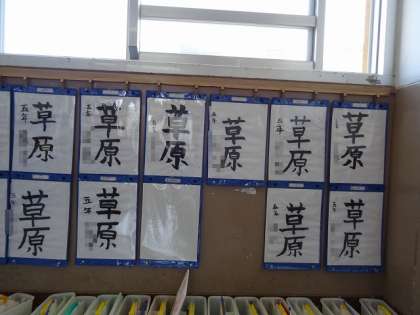 草原
五年
草原
五年
草原
草原
五年
草原
五年
草原
五年
草原
草原
五年
草原
五年
草原
五年